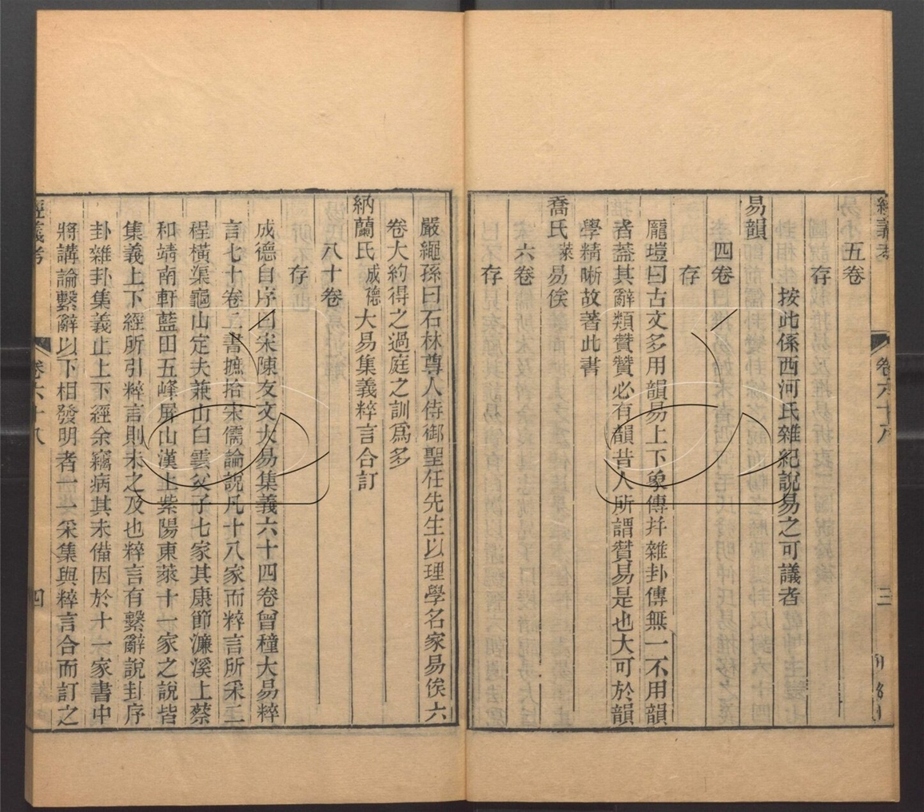 經義考 卷六十八 三
五卷
存
按此係西河氏雜紀說易之可議者
易韻
四卷
存
龎塏曰古文多用韻易上下象傳幷雜卦傳無一不用韻
者葢其辭類贊贊必有韻昔人所謂贊易是也大可於韻
學精晰故著此書
喬氏萊易俟
六卷
存
嚴繩孫曰石林尊人侍御聖任先生以理學名家易俟六
卷大約得之過庭之訓爲多
納蘭氏成德大易集義粹言合訂
八十卷
存
成德自序曰宋陳友文大易集義六十四卷曾穜大易粹
言七十卷二書摭拾宋儒論說凡十八家而粹言所采二
程橫渠龜山定夫兼山白雲父子七家其康節濂溪上蔡
和靖南軒藍田五峰屏山漢上紫陽東萊十一家之說皆
集義上下經所引粹言則未之及也粹言有繫辭說卦序
卦雜卦集義止上下經余竊病其未備因於十一家書中
將講論繫辭以下相發明者一一采集與粹言合而訂之
經義考 卷六十八 四